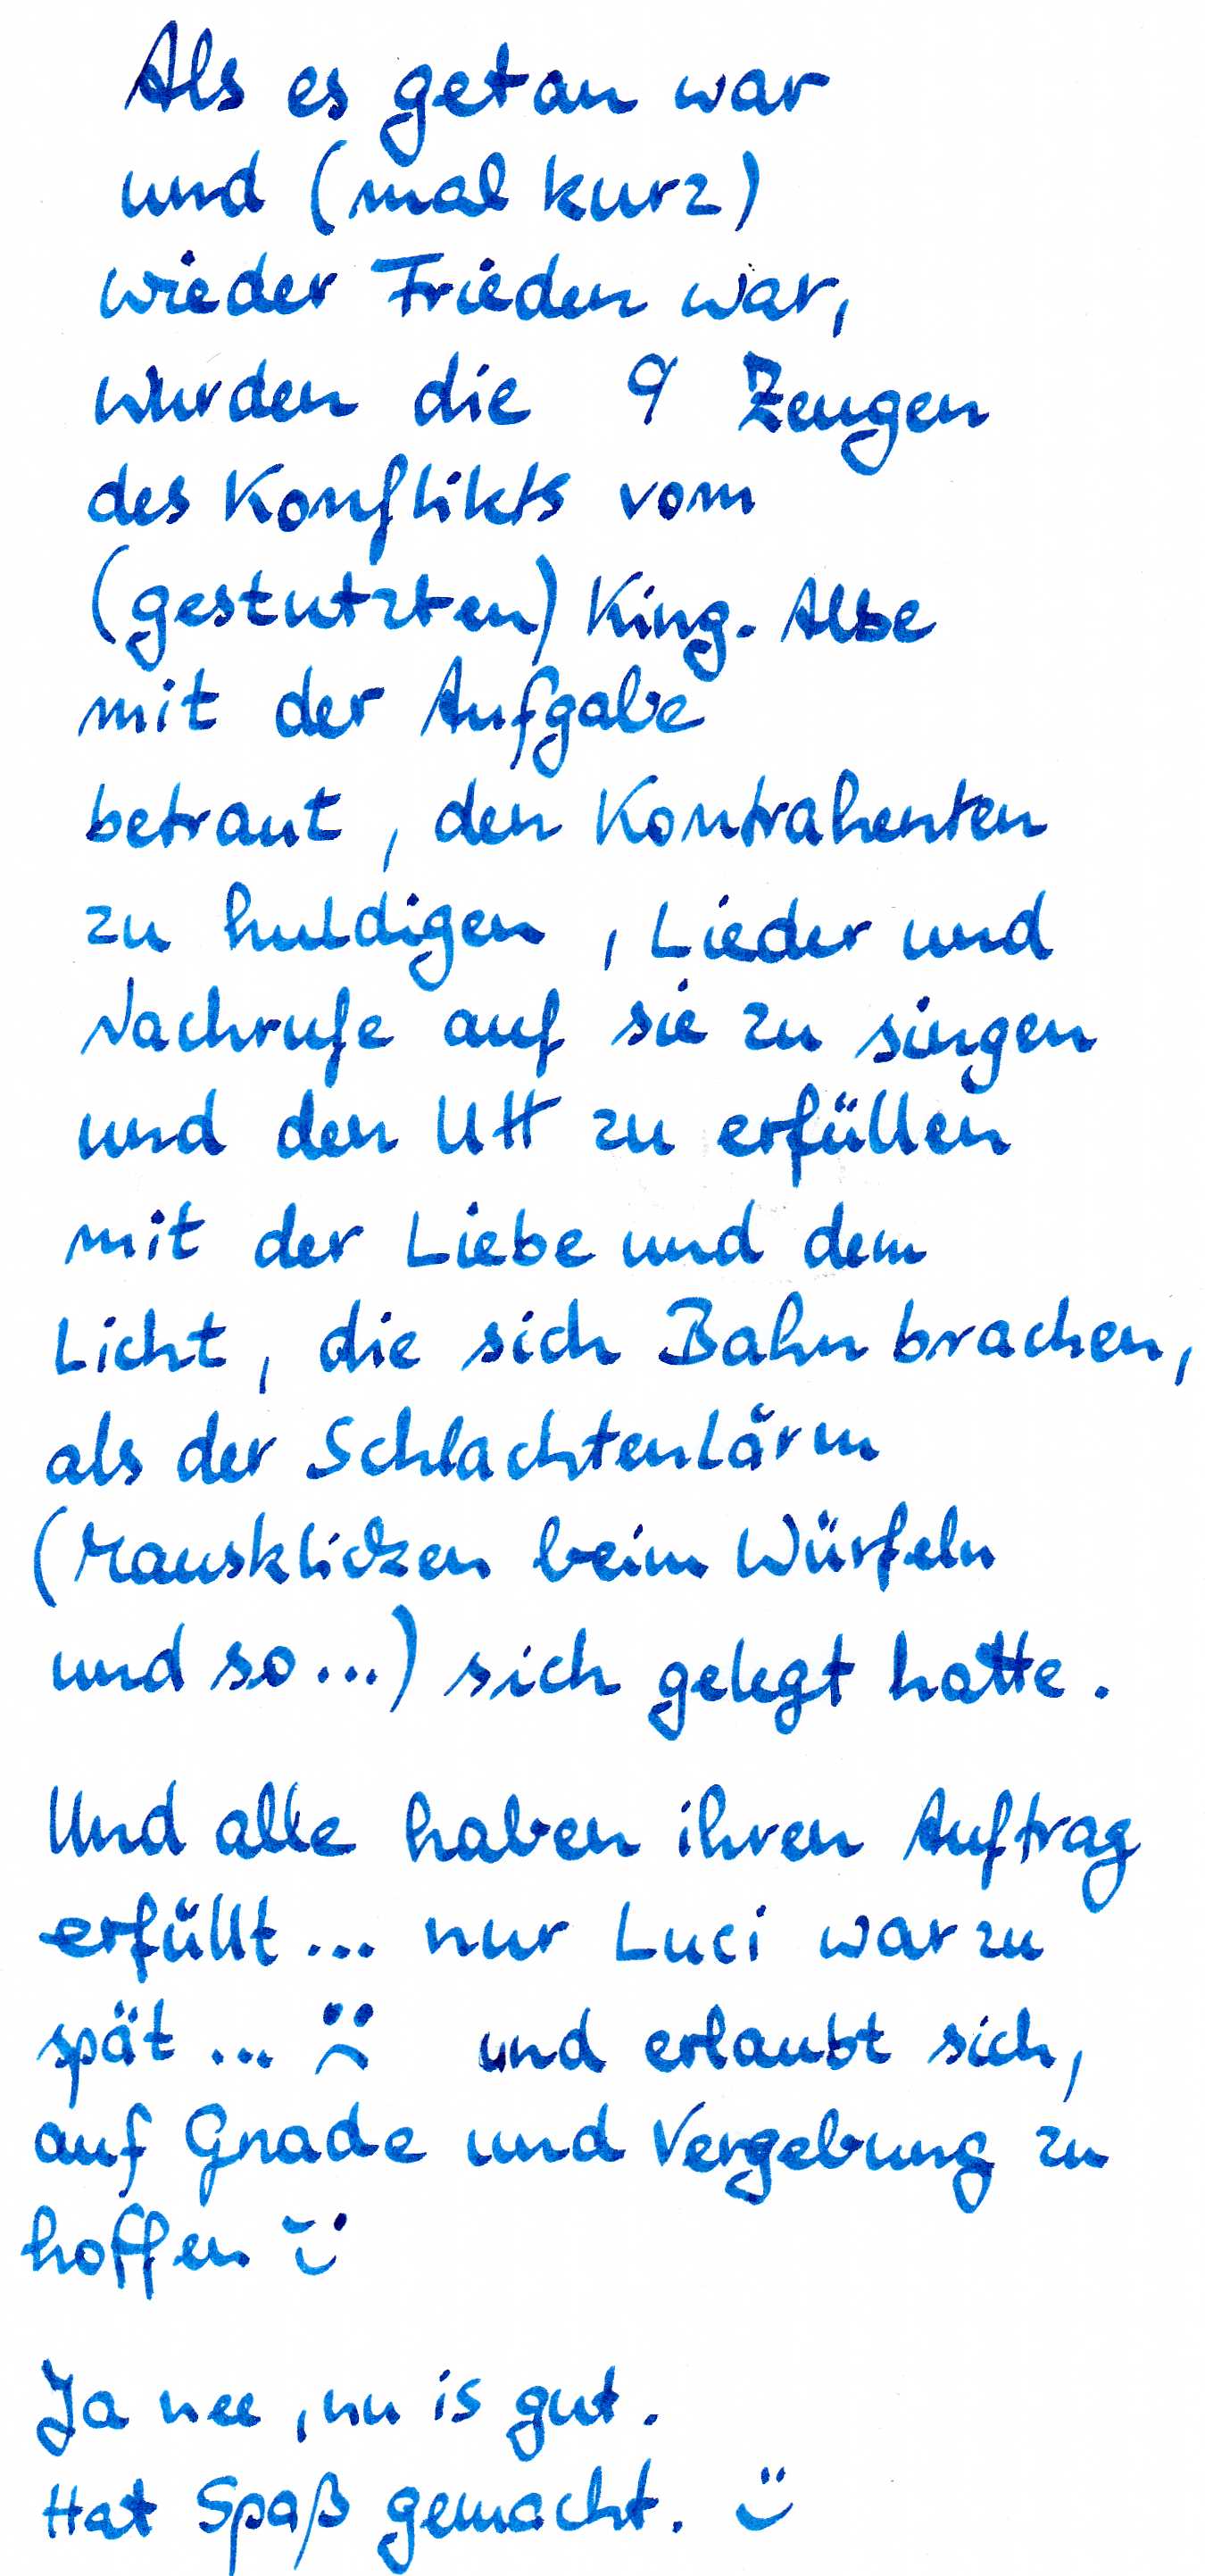 Als es getan war
und (mal kurz)
wieder Frieden war,
wurden die 9 Zeugen
des Konflikts vom
(gestutzten) King. Albe
mit der Aufgabe
betraut, den Kontrahenten
zu huldigen, Lieder und
Nachrufe auf sie zu singen
und den UH zu erfüllen
mit der Liebe und dem
Licht, die sich Bahn brachen,
als der Schlachtenlärm
(Mausklicken beim Würfeln
und so...) sich gelegt hatte.
Und alle haben ihren Auftrag
erfüllt... nur Luci war zu
spät... :( und erlaubt sich,
auf Gnade und Vergebung zu
hoffen ;)
Ja nee, nu is gut.
Hat Spaß gemacht. :)